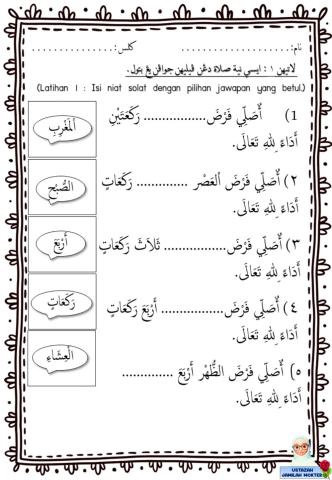 نام:..................... كلس:...............
لاتيهن ١ : ايسي نية صلاة دڠن ڤيليهن جواڤن يڠ بتول.
(Latihan 1 : Isi niat solat dengan pilihan jawapan yang betul.)
1) أُصَلِّي فَرْضَ................. رَكْعَتَيْنِ
أَدَاءً لِلهِ تَعَالَى.
٢) أُصَلِّي فَرْضَ الْعَصْر .............. رَكَعَاتٍ
أَدَاءً لِلهِ تَعَالَى.
٣) أُصَلِّي فَرْضَ................. ثَلَاثَ رَكَعَاتٍ
أَدَاءً لِلهِ تَعَالَى.
٤) أُصَلِّي فَرْضَ................. أَرْبَعَ رَكَعَاتٍ
أَدَاءً لِلهِ تَعَالَى.
٥) أُصَلِّي فَرْضَ الظُّهْر أَرْبَعَ ..............
أَدَاءً لِلهِ تَعَالَى.
اَلْمَغْرِبِ
الصُّبْحِ
أَرْبَعَ
رَكَعَاتٍ
الْعِشَاءِ
USTAZAH
JAMILAH MOKTER